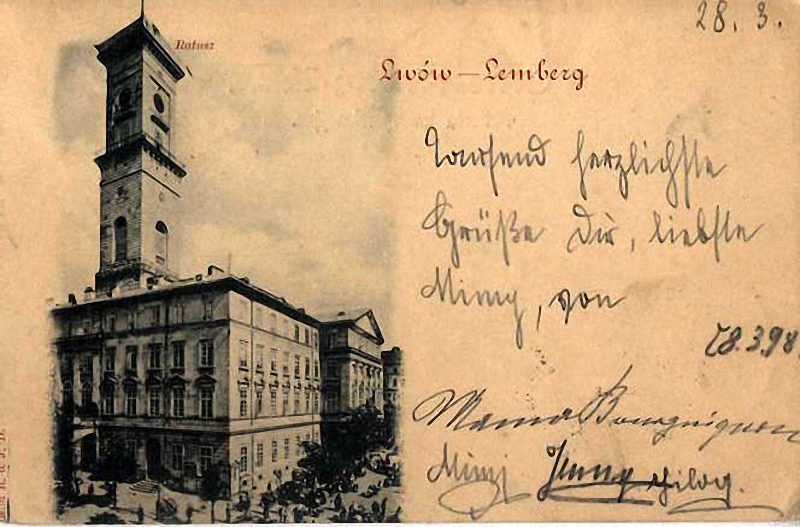 28. 3.
Ratusz
Lwów — Lemberg
Tausend herzlichste
Grüße Dir, liebste
Mimy, von
28.3.98
Mama Bourguignon
Mimj